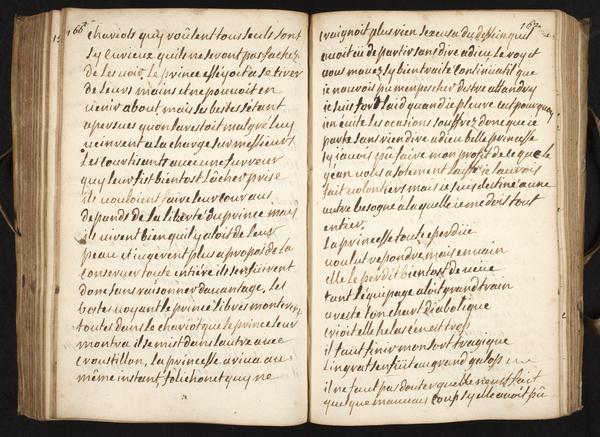 166
chariots quy roûlent tous seuls sont
sy curieux quils ne seront pas fachez
de les voir, Le prince essayoit a se tirer
de leurs mains et ne pouvoit en
venir about, mais les bestes sétant
apersues quon larestoit malgré luy
revinrent a la charge sur messieurs
les courtisants avec une furreur
quy leur fist bientost lacher prise
ils vouloient faire leur cour aux
despands de la liberté du prince mais
ils virent bien quil y aloit de leur
peau et jugérent plus apropos de la
conserver toute entiére ils senfuirent
donc sans raisonner davantage, Les
bestes voyant le prince libres monterent
toutes dans le chariot que le prince leur
montra il se mist dans lautre avec
croustillon, la princesse ariva au
même instant, folichonet quy ne
craignoit plus rien sexcusa du dessein quil
avoit eü de partir sans dire adieu Le roy et
vous mavez sy bien traité continüa til que
je naurois pü menpescher destre attandry
je suis fort laid quand je pleure cest pourquoy
jévite les ocasions souffrez donc que je
parte sans rien dire adieu belle princesse
sy javois pü faire mon profit de ce que le
géan vous a sotement laissé je laurois
fait volontiers mais je suis destiné a une
autre besogne à laquelle je me dois tout
entier,
La princesse toute eperdüe
voulut repondre mais en vain
elle le perdit bientost de veüe
tant léquipage aloit grand train
avec ton char diabolique
crioit elle helas cen est trop
il faut finir mon sort tragique
Lingrat senfüit au grand galop
il ne faut pas douter quelle neust fait
quelque mauvais coup sy elle avoit pü